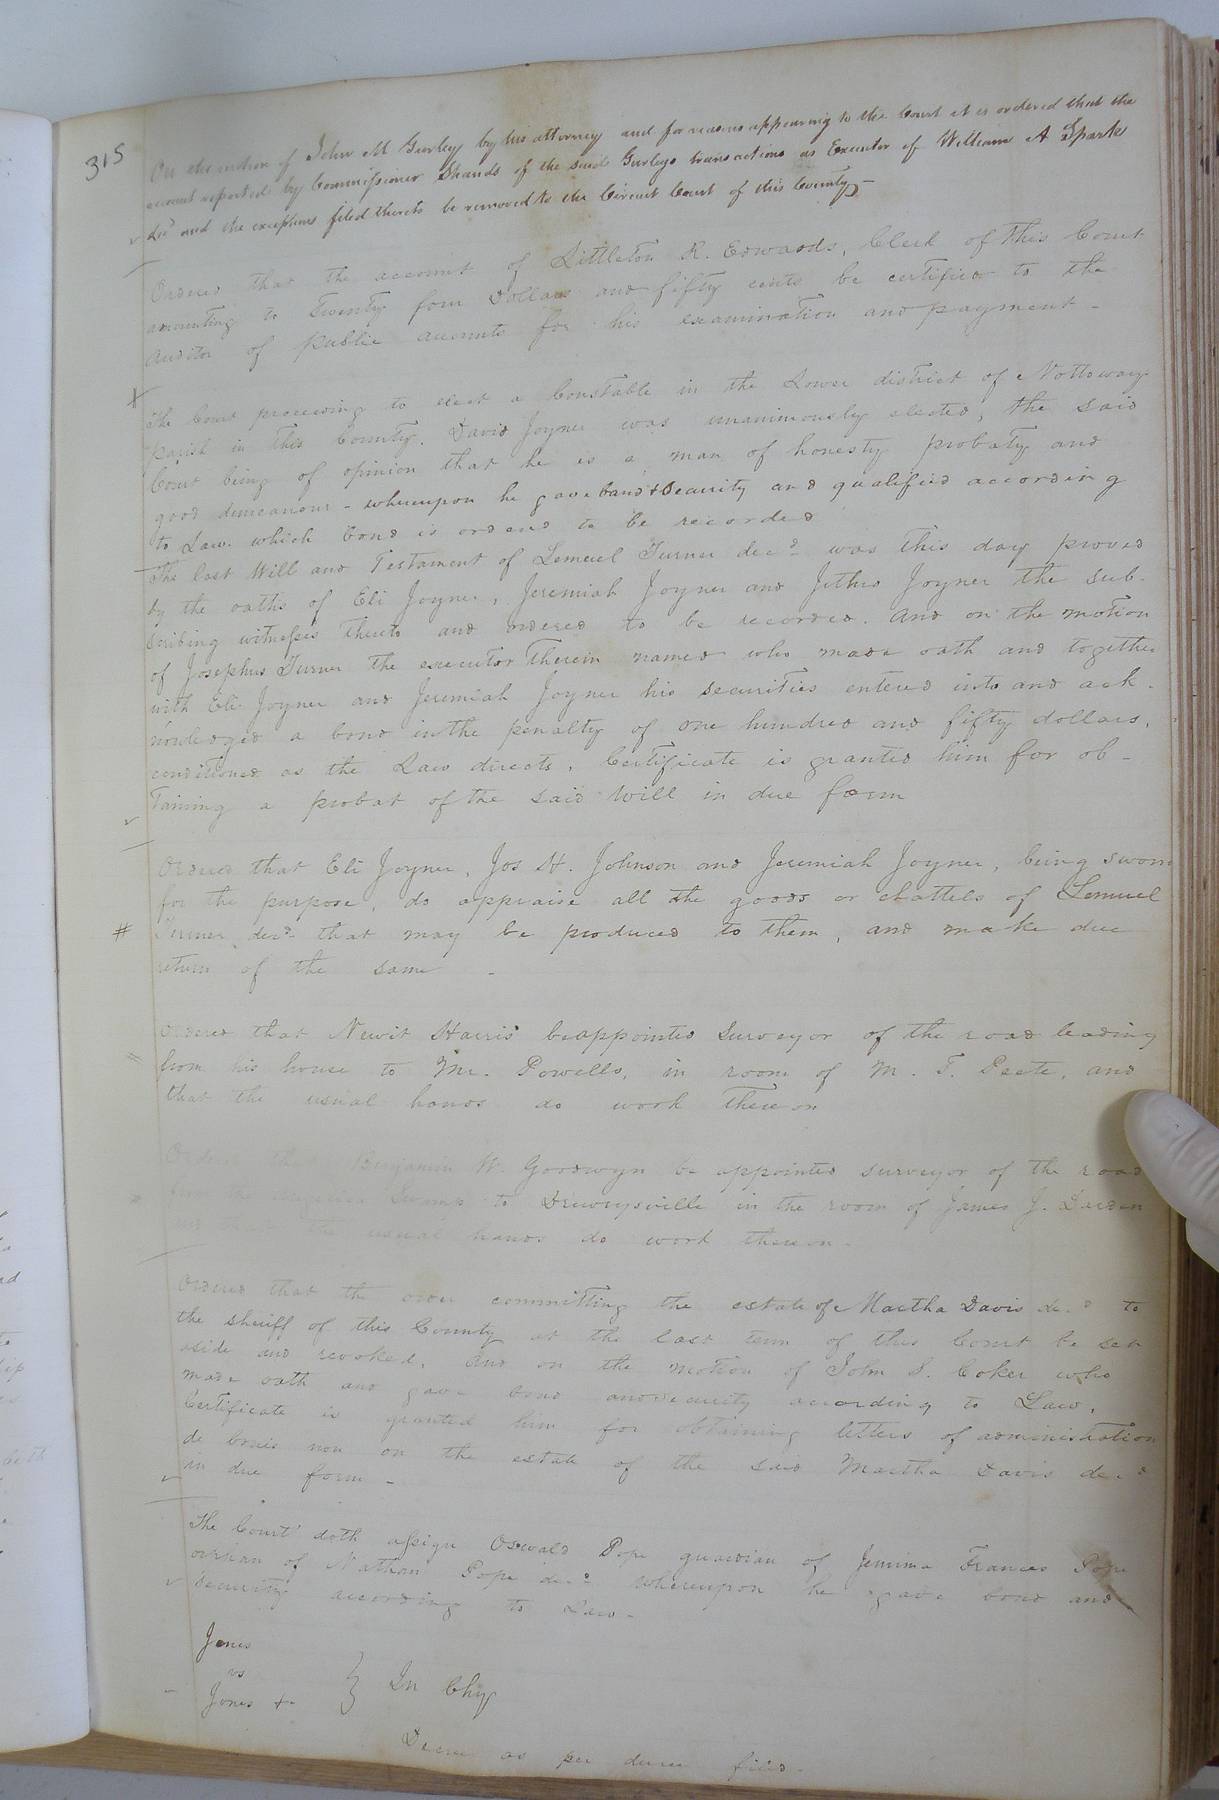 315
On the motion of John M Gurley by his attorney and for reasons appearing to the Court it is ordered that the
account reported by Commissioner Shands of the said Gurleys transactions as Executor of William A Sparks
decd and the exceptions filed thereto be removed to the Circuit Court of this County -
Ordered that the account of Littleton R. Edwards, Clerk of this Court
amounting to Twenty four Dollars and fifty cents be certified to the
Auditor of public accounts for his examination and payment -
The Court proceeding to elect a Constable in the Lower district of Nottoway
parish in this County. David Joyner was unanimously elected, the said
Court being of opinion that he is a man of honesty probaty and
good demeanour - whereupon he gave band & Security and qualified according
to Law. which bond is ordered to be recorded
The last Will and Testament of Lemuel Turner decd was this day proved
by the oaths of Eli Joyner, Jeremiah Joyner and Jethro Joyner the sub-
scribing witnesses thereto and ordered to be recorded. And on the motion
of Josephus Turner the executor Therein named who made oath and together
with Eli Joyner and Jeremiah Joyner his securities entered into and ack-
nowledged a bond in the penalty of one hundred and fifty dollars,
conditioned as the Law directs, Certificate is granted him for ob-
Taining a probat of the said Will in due form
Ordered that Eli Joyner, Jos H. Johnson and Jeremiah Joyner, being sworn
for the purpose, do appraise all the goods or chattels of Lemuel
# Turner decd that may be produced to them, and make due
return of the same -
Ordered that Newit Harris be appointed Surveyor of the road leading
from his house to Mr. Powells, in room of M. T. and
that the usual hands do work There on
Ordered that Benjamin W. Goodwyn be appointed surveyor of the road
from the Swamp to Drewrysville in the room of James J. Darden
and that the usual hands do work thereon -
Ordered that the order committing the estate of Martha Davis decd to
the sheriff of this County at the last term of this Court be set
aside and revoked, And on the motion of John S. Coker who
made oath and gave bond and security according to Law,
Certificate is granted him for obtaining letters of administration
de bonis non on the estate of the said Martha Davis decd
in due form -
The Court doth assign Oswald Pope guardian of Jemima Frances Pope
orphan of Nathan Pope decd whereupon he gave bond and
security according to Law -
Jones
vs
Jones &c } In Chy
Decree as per decree filed -